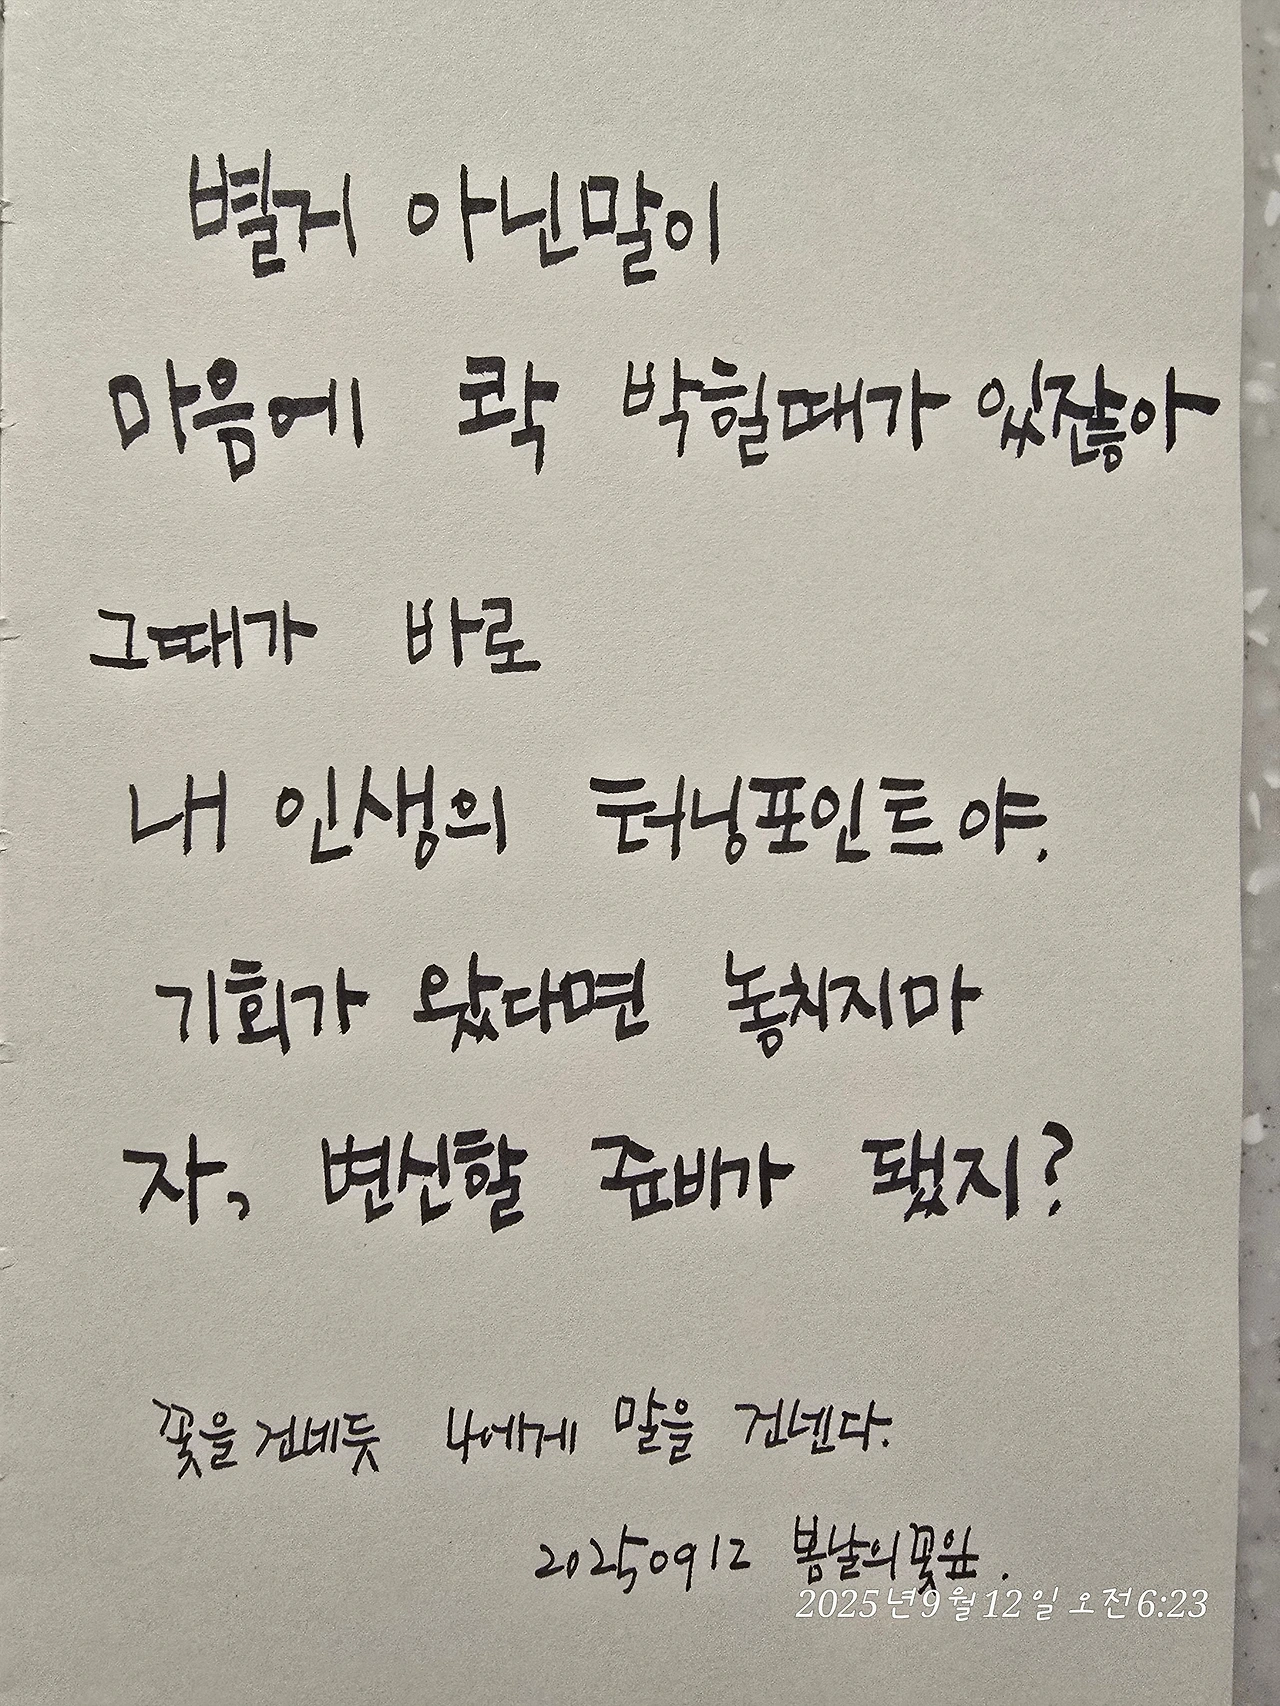 별거 아닌말이
마음에 콱 박힐때가 있잖아
그때가 바로
내 인생의 터닝포인트야.
기회가 왔다면 놓치지마
자, 변신할 준비가 됐지?
꽃을 건네듯 나에게 말을 건넨다.
20250912 봄날의꽃잎.
2025년9월12일 오전6:23